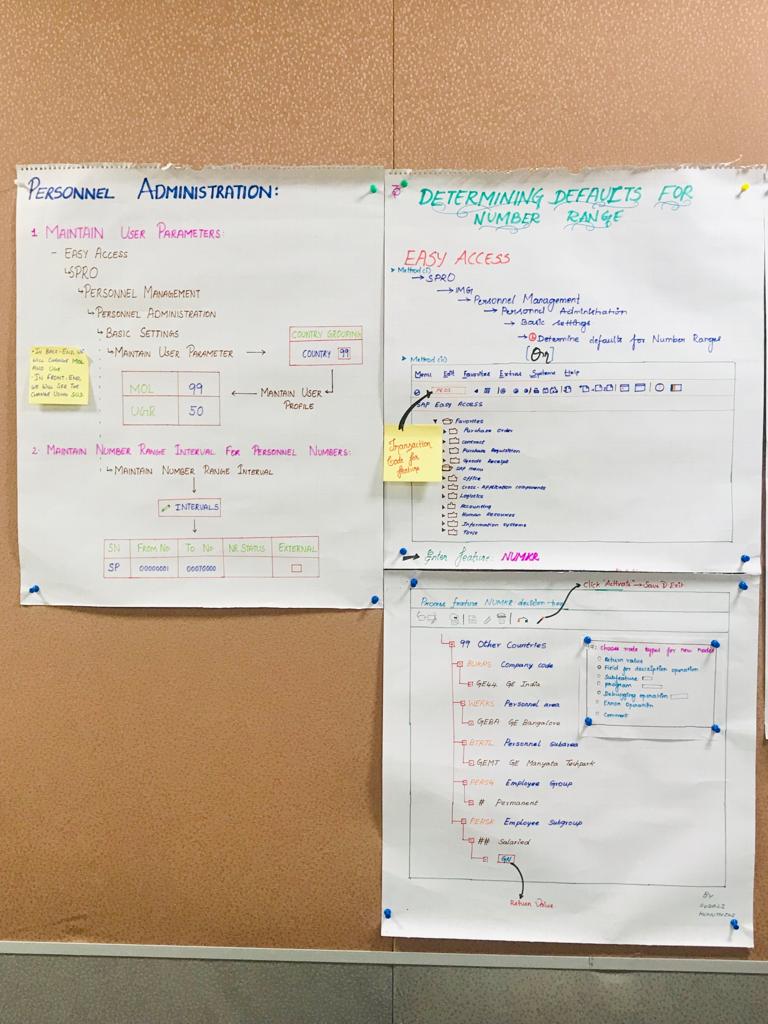 PERSONNEL ADMINISTRATION:
1. MAINTAIN USER PARAMETERS:
- EASY ACCESS
SPRO
PERSONNEL MANAGEMENT
PERSONNEL ADMINISTRATION
BASIC SETTINGS
MAINTAIN USER PARAMETER
COUNTRY GROUPING
COUNTRY 99
MAINTAIN USER PROFILE
MOL 99
UGR 50
• IN BACK-END, WE
WILL CHANGE MOL
AND UGR
• IN FRONT-END,
WE WILL SEE THE
CHANGE USING
2. MAINTAIN NUMBER RANGE INTERVAL FOR PERSONNEL NUMBERS:
MAINTAIN NUMBER RANGE INTERVAL
INTERVALS
SN FROM NO TO NO NR STATUS EXTERNAL
SP 00000001 00070000
DETERMINING DEFAULTS FOR
NUMBER RANGE
EASY ACCESS
Method (i)
SPRO
IMG
Personnel Management
Personnel Administration
Basic settings
Determine defaults for Number Ranges
(Or)
Method (ii)
Menu Edit Favorites Extras System Help
PE03
SAP EASY ACCESS
Transaction
Code for
feature
Favorites
Purchase Order
Contract
Purchase Requisition
Goods Receipt
SAP menu
Office
Cross-Application components
Logistics
Accounting
Human Resources
Information systems
Tools
Enter feature: NUMKR
Click "Activate" → Save & Exit
Process feature NUMKR decision-tree
99 Other Countries
BUKRS Company code
GE44 GE India
WERKS Personnel area
GEBA GE Bangalore
BTRTL Personnel subarea
GEMT GE Manyata Techpark
PERSG Employee Group
# Permanent
PERSK Employee Subgroup
## Salaried
Return Value
choose node types for new node
Return value
Field for decision operation
Subfeature
program
Debugging operation
Error Operation
Comment
By